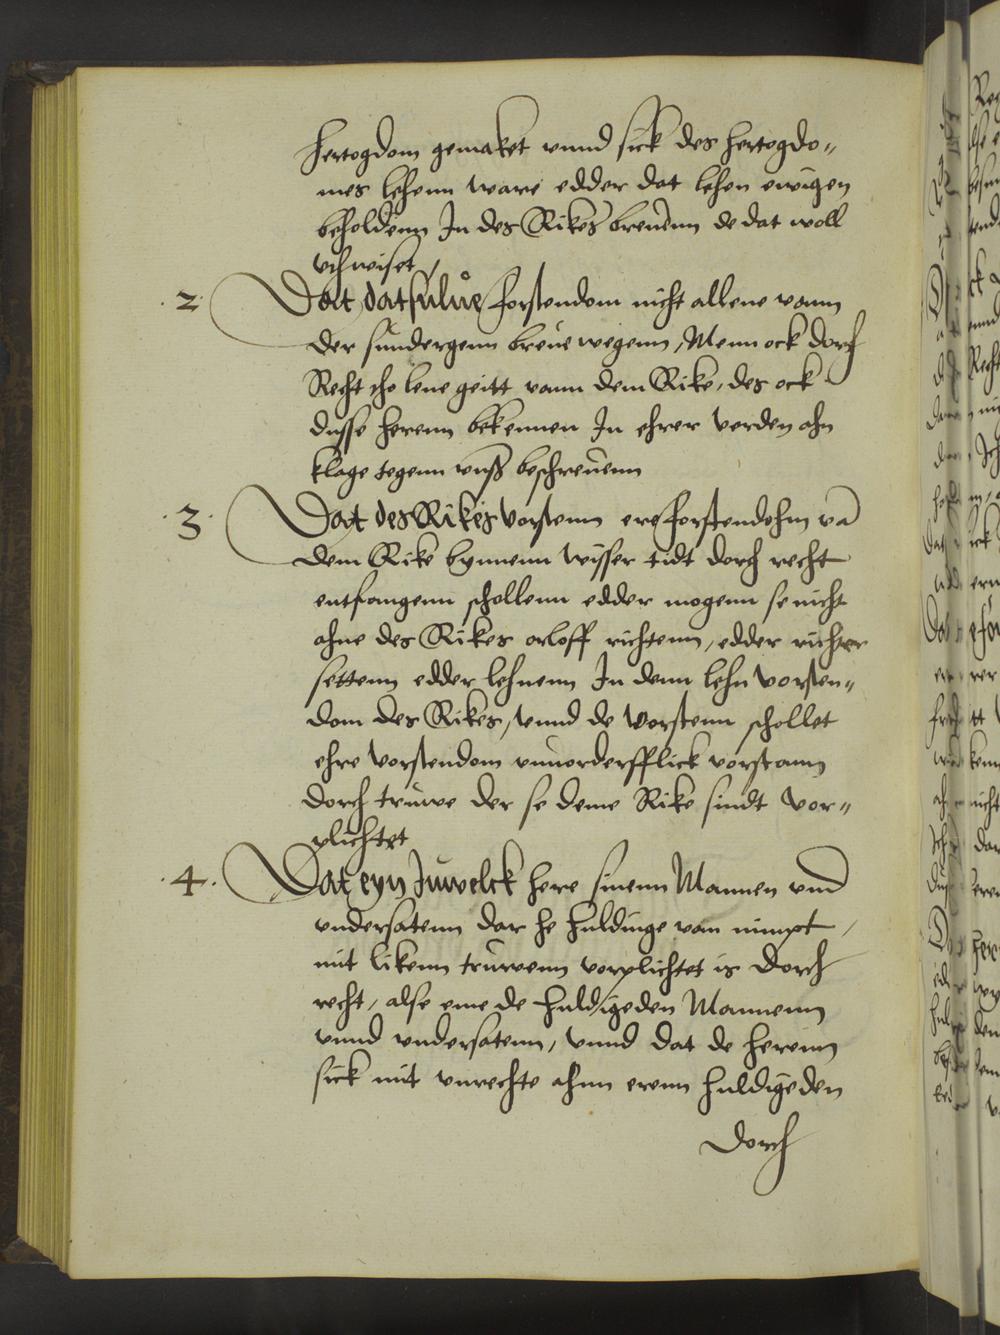 hertogdom gemaket vnnd sick des hertogdo„
mes lehenn ware edder dat lehen ewigen
beholdenn In des Rikes breuenn de dat woll
vthwiset /
.2. Dat datsulue forstendom nicht allene vann
der sundergenn breue wegenn, Menn ock dorch
Recht tho lene geitt vann dem Rike, des ock
dusse herenn bekennen In ehrer verden ahn
klage tegenn vnß beschreuenn
.3. Dat des Rikes vorstenn ere forstendohm va
dem Rike bynnenn wisser tidt dorch recht
entfangenn schollenn edder mogenn se nicht
ahne des Rikes orloff richtenn, edder richter
settenn edder lehnenn In denn lehn vorsten„
dom des Rikes, vnnd de vorstenn schollet
ehre vorstendom vnuorderfflick vorstann
dorch truwe der se deme Rike sindt vor„
plichtet
.4. Dat eyn Juwelck here sinenn Mannen vnd
vndersatenn dar he huldinge van nimpt /
mit likenn truwenn vorplichtet is dorch
recht, alse eme de huldigeden Mannenn
vnnd vndersatenn, vnnd dat de herenn
sick mit vnrechte ahnn erenn huldigeden
dorch